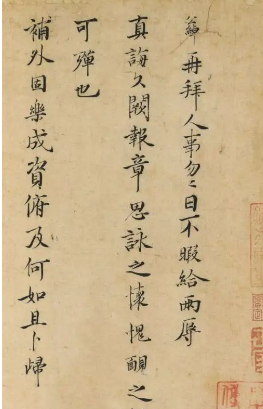 再拜人事勿〻日不暇給兩辱
真誨久闕報章思詠之懷愧靦之
可殫也
補外固樂成資俯及何如且卜歸